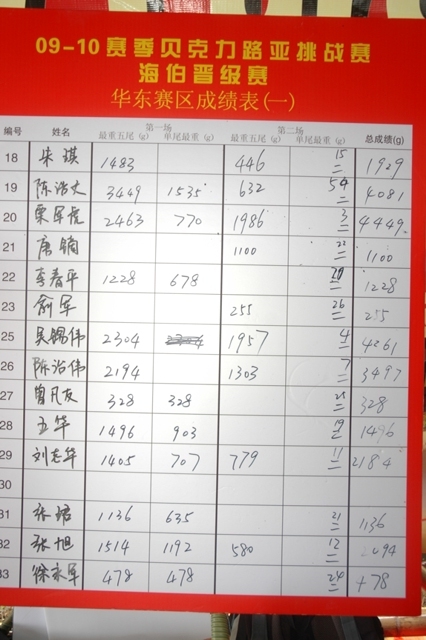 09-10赛季贝克力路亚挑战赛
海伯晋级赛
华东赛区成绩表(一)
编号 姓名 第一场 第二场 总成绩(g)
最重五尾(g) 单尾最重(g) 最重五尾(g) 单尾最重(g)
18 朱琪 1483 446 15 1929
19 陈治大 3449 1535 632 54 4081
20 栗军虎 2463 770 1986 3 4449
21 唐镝 1100 22 1100
22 李春平 1228 678 1228
23 俞军 255 26 255
25 吴锡伟 2304 1957 4 4261
26 陈治伟 2194 1303 7 3497
27 曾凡友 328 328 328
28 王华 1496 903 19 1496
29 刘志华 1405 707 779 11 2184
30
31 1136 635 21 1136
32 张旭 1514 1192 580 12 2094
33 徐永军 478 478 24 478